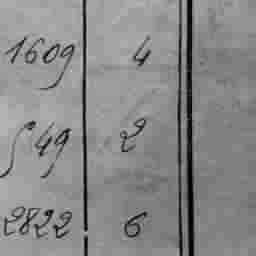 1609 4
549 2
2822 6